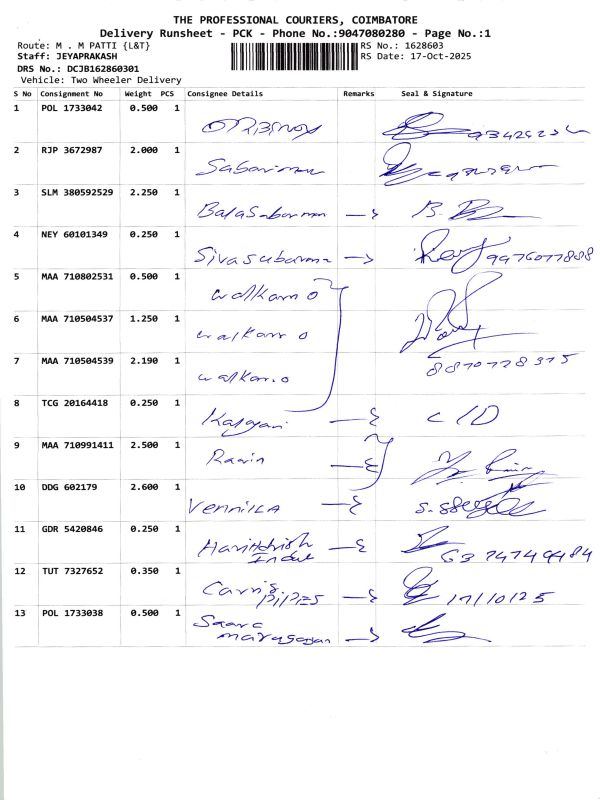 THE PROFESSIONAL COURIERS, COIMBATORE
Delivery Runsheet - PCK - Phone No.:9047080280 - Page No.:1
Route: M . M PATTI {L&T} RS No.: 1628603
Staff: JEYAPRAKASH RS Date: 17-Oct-2025
DRS No.: DCJB162860301
Vehicle: Two Wheeler Delivery
S No Consignment No Weight PCS Consignee Details Remarks Seal & Signature
1 POL 1733042 0.500 1
2 RJP 3672987 2.000 1
3 SLM 380592529 2.250 1 Balasubarman
4 NEY 60101349 0.250 1 Sivasubarma 9976077808
5 MAA 710802531 0.500 1 walkarro
6 MAA 710504537 1.250 1 walkarro
7 MAA 710504539 2.190 1 walkarro
8870778375
8 TCG 20164418 0.250 1
9 MAA 710991411 2.500 1
10 DDG 602179 2.600 1 Vennila
11 GDR 5420846 0.250 1
6374749484
12 TUT 7327652 0.350 1 17/10/25
PIPES
13 POL 1733038 0.500 1